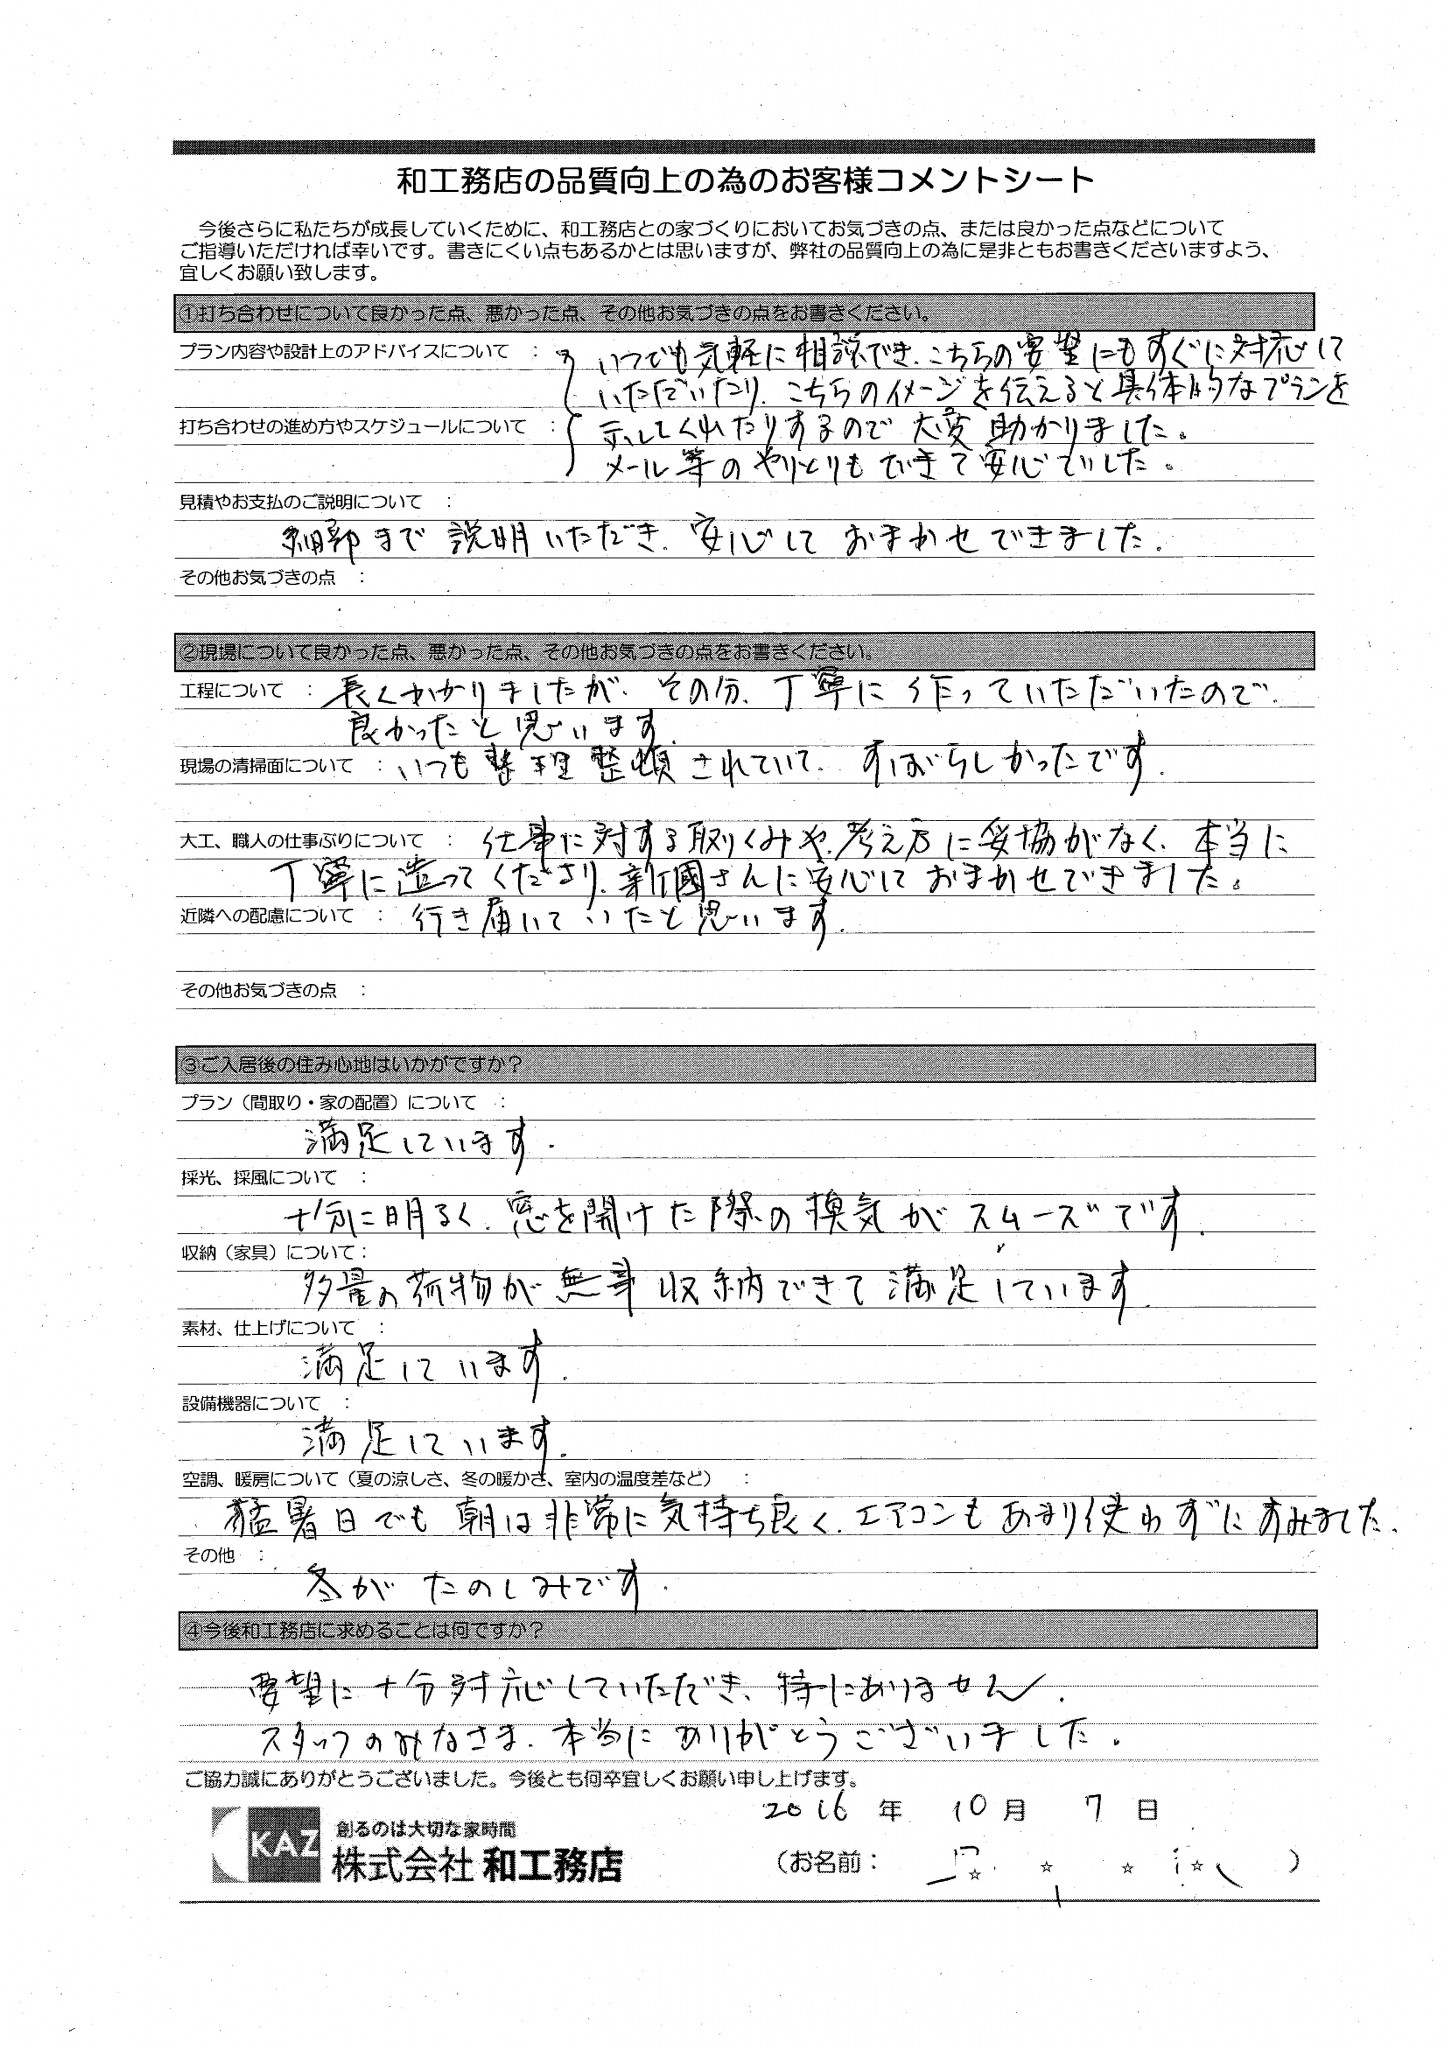 和工務店の品質向上の為のお客様コメントシート
今後さらに私たちが成長していくために、和工務店との家づくりにおいてお気づきの点、または良かった点などについて
ご指導いただければ幸いです。書きにくい点もあるかとは思いますが、弊社の品質向上の為に是非ともお書きくださいますよう、
宜しくお願い致します。
①打ち合わせについて良かった点、悪かった点、その他お気づきの点をお書きください。
プラン内容や設計上のアドバイスについて ： いつでも気軽に相談でき、こちらの要望にもすぐに対応して
いただいたり、こちらのイメージを伝えると具体的なプランを
打ち合わせの進め方やスケジュールについて ： 示してくれたりするので大変助かりました。
メール等のやりとりもできて安心でした。
見積やお支払のご説明について ：
細部まで説明いただき、安心しておまかせできました。
その他お気づきの点 ：
②現場について良かった点、悪かった点、その他お気づきの点をお書きください。
工程について ： 長くかかりましたが、その分、丁寧に作っていただいたので、
良かったと思います。
現場の清掃面について ： いつも整理整頓されていて、すばらしかったです。
大工、職人の仕事ぶりについて ： 仕事に対する取りくみや、考え方に妥協がなく、本当に
丁寧に造ってくださり、新國さんに安心しておまかせできました。
近隣への配慮について ： 行き届いていたと思います。
その他お気づきの点 ：
③ご入居後の住み心地はいかがですか？
プラン（間取り・家の配置）について ：
満足しています。
採光、採風について ：
十分に明るく、窓を開けた際の換気がスムーズです。
収納（家具）について：
多量の荷物が無事収納できて満足しています。
素材、仕上げについて ：
満足しています。
設備機器について ：
満足しています。
空調、暖房について（夏の涼しさ、冬の暖かさ、室内の温度差など） ：
猛暑日でも朝は非常に気持ち良く、エアコンもあまり使わずにすみました。
その他 ：
冬がたのしみです。
④今後和工務店に求めることは何ですか？
要望に十分対応していただき、特にありません。
スタッフのみなさま、本当にありがとうございました。
ご協力誠にありがとうございました。今後とも何卒宜しくお願い申し上げます。
2016 年 10 月 7 日
KAZ
創るのは大切な家時間
株式会社 和工務店
（お名前： ☆ ☆ ☆ ☆ ）